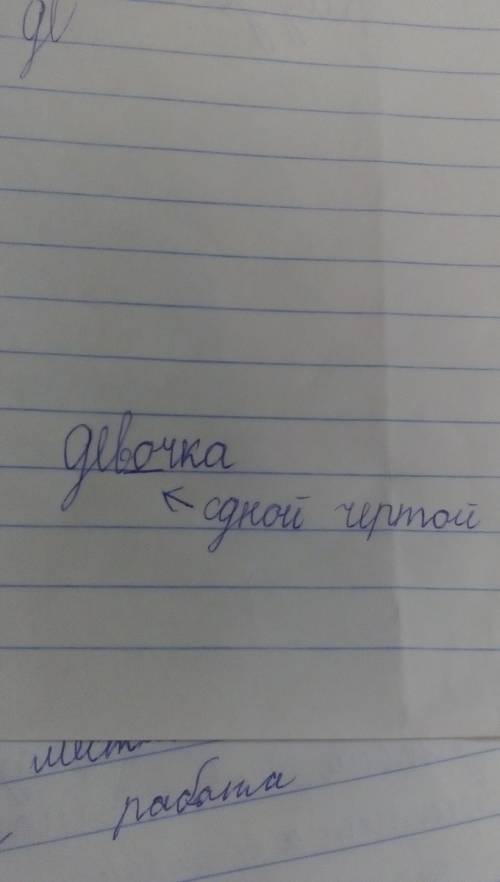 де
девочка
← одной чертой
работа